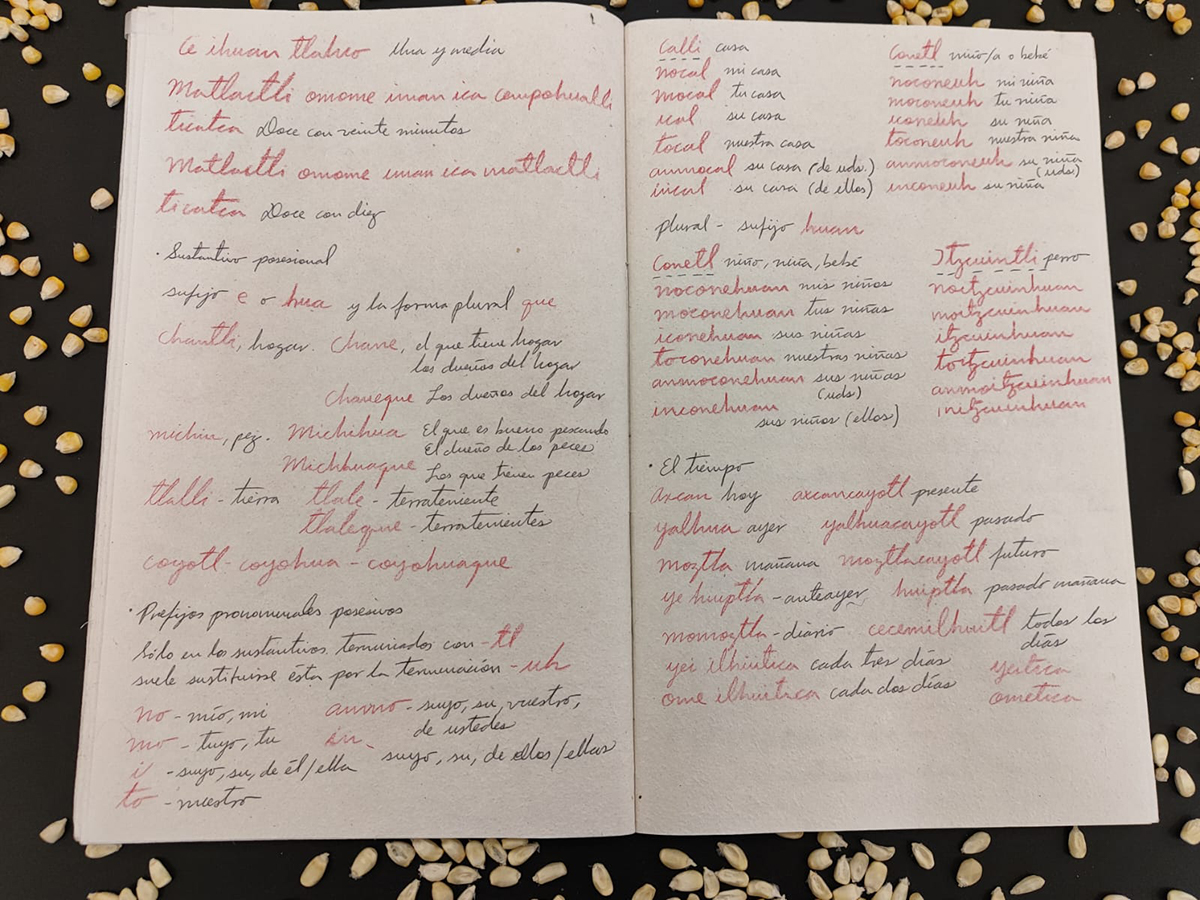 Ce ihuan tlahco Una y media
Matlactli omome iuan ica cempohualli
ticatca Doce con veinte minutos
Matlactli omome iuan ica matlactli
ticatca Doce con diez
· Sustantivo posesional
sufijo e o hua y la forma plural que
Chantli, hogar. Chane, el que tiene hogar
los dueños del hogar
Chaneque Los dueños del hogar
michin, pez. Michihua El que es bueno pescando
El dueño de los peces
Michhuaque Los que tienen peces
tlalli - tierra tlale - terrateniente
tlaleque - terratenientes
coyotl - coyohua - coyohuaque
· Prefijos pronominales posesivos
Sólo en los sustantivos terminados con -tl
suele sustituirse ésta por la terminación -uh
no - mío, mi anmo - suyo, su, vuestro,
de ustedes
mo - tuyo, tu in -
i - suyo, su, de él/ella suyo, su, de ellos/ellas
to - nuestro
Calli casa
nocal mi casa
mocal tu casa
ical su casa
tocal nuestra casa
anmocal su casa (de uds.)
incal su casa (de ellos)
Conetl niño/a o bebé
noconeuh mi niña
moconeuh tu niña
iconeuh su niña
toconeuh nuestra niña
anmoconeuh su niña
(uds)
inconeuh su niña
plural - sufijo huan
Conetl niño, niña, bebé
noconehuan mis niños
moconehuan tus niñas
iconehuan sus niñas
toconehuan nuestras niñas
anmoconehuan sus niñas
(uds)
inconehuan
sus niños (ellos)
Itzcuintli perro
noitzcuinhuan
moitzcuinhuan
itzcuinhuan
toitzcuinhuan
anmoitzcuinhuan
initzcuinhuan
· El tiempo
axcan hoy axcancayotl presente
yalhua ayer yalhuacayotl pasado
moztla mañana moztlacayotl futuro
ye huiptla - anteayer huiptla pasado mañana
momoztla - diario cecemilhuitl todos los
días
yei ilhuitica cada tres días yeitica
ome ilhuitica cada dos días ometica